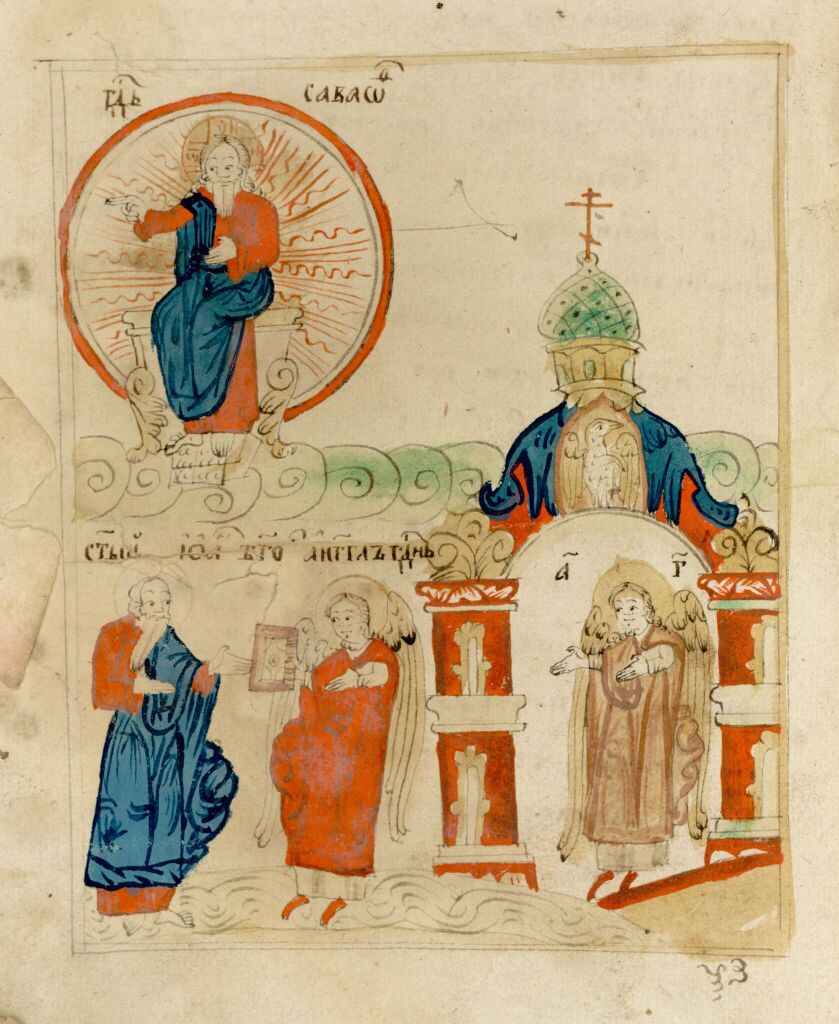 гдⷭ҇ь саваѡⷴ
ст҃ыи іѡⷩ҇а бг҃о анг҃лъ гдⷭ҇нь
а҃ г҃